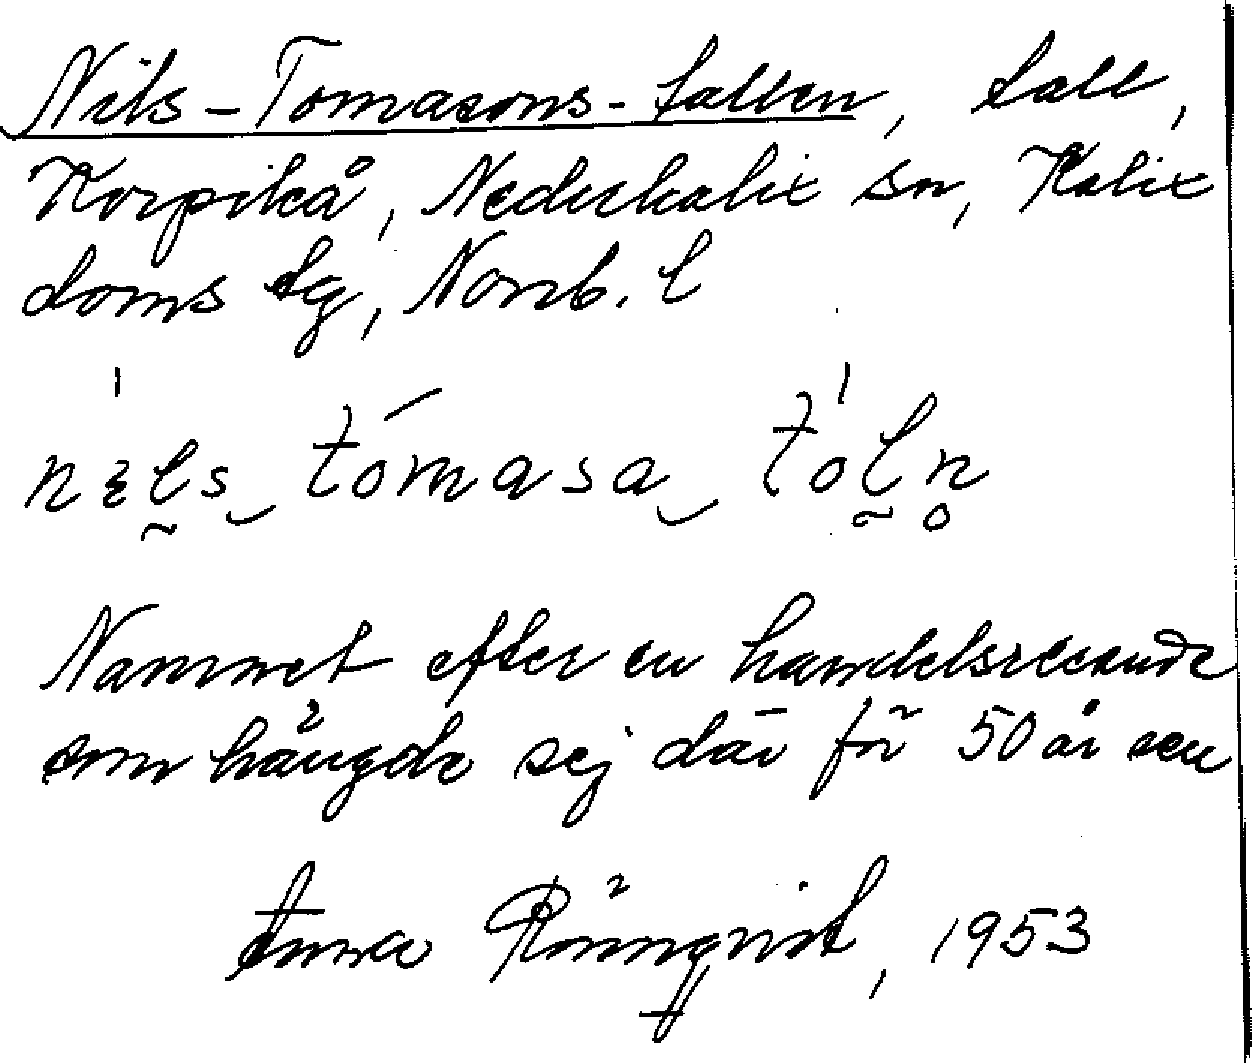 Nils-Tomasons-tallen, tall,
Korpikå, Nederkalix sn, Kalix
doms tg, Norrb. l
tómasa
Namnet efter en handelsresande
som hängde sej där för 50 år sen
Anna Rönnqvist, 1953